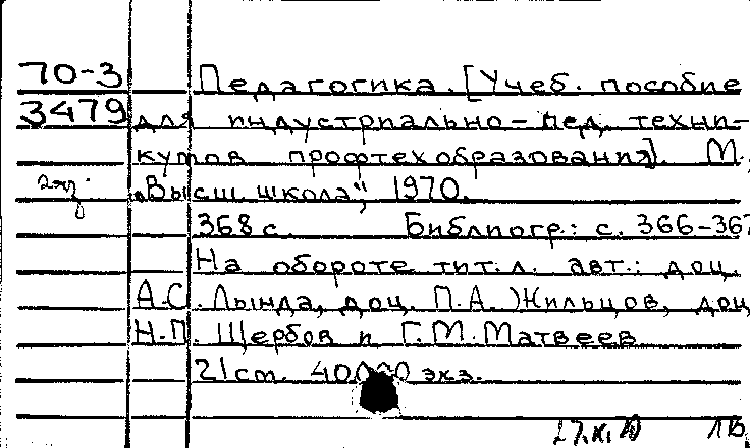 70-3 Педагогика. [Учеб. пособие
3479 для индустриально-пед. техни-
кумов профтехобразования]. М.,
2 яз. „Высш. школа", 1970.
368 с. Библиогр.: с. 366-367
На обороте тит. л. авт.: доц.
А.С. Лында, доц. П.А. Жильцов, доц
Н.П. Щербов и Г.М. Матвеев
21 см. 40000 экз.